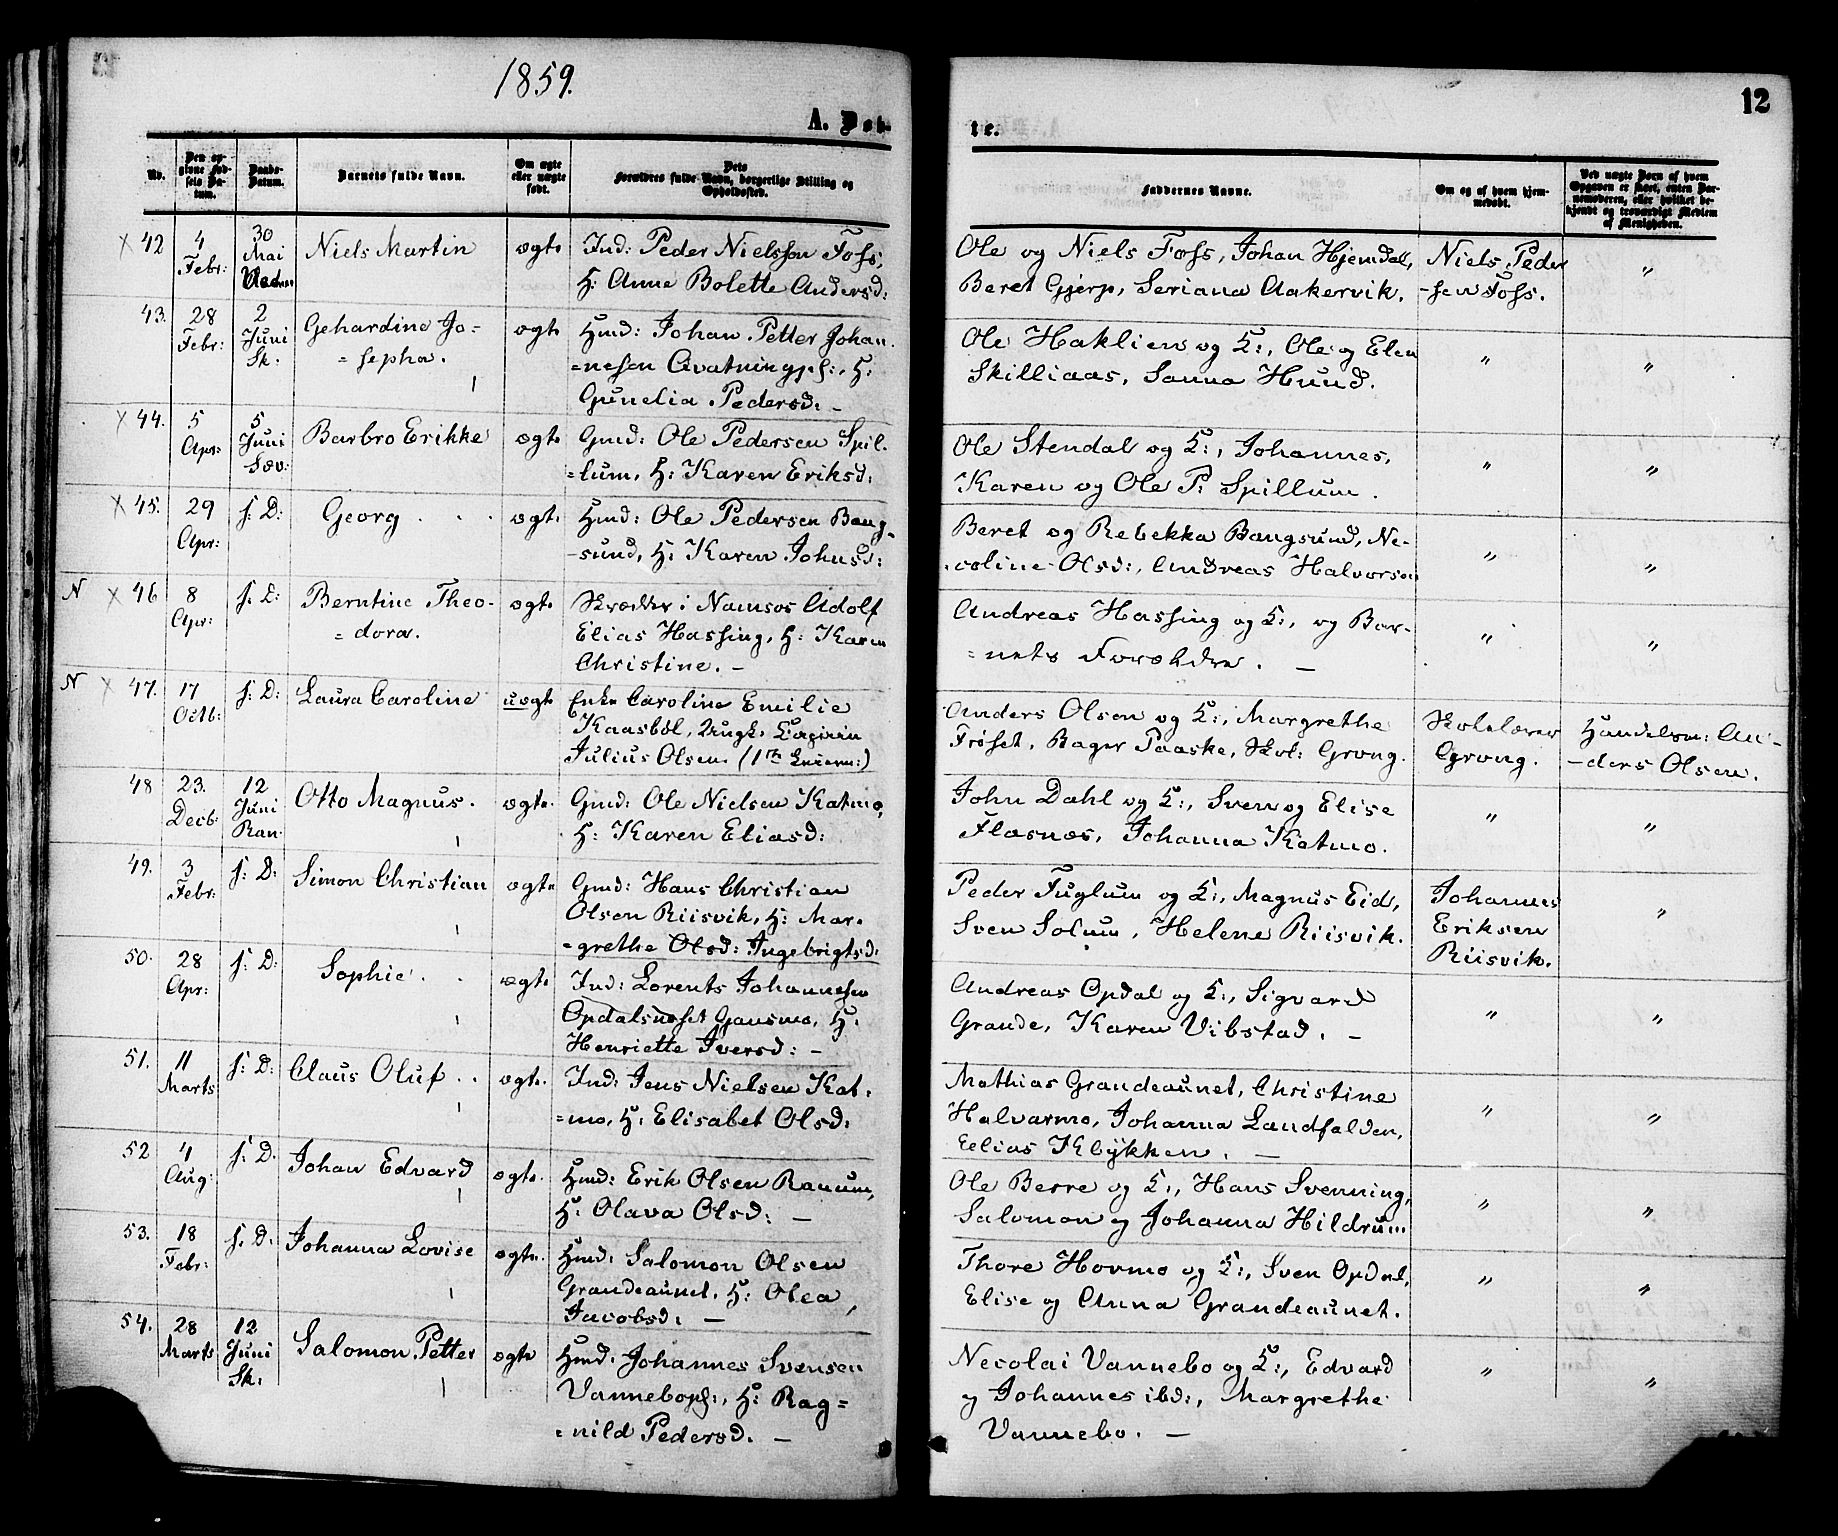 1859.
12
A. Døb-
te.
No.
Den op-
givne Fød-
sels Da-
tum.
Daabs-
Datum.
Barnets fulde Navn.
Om ægte
eller uægte
født.
Dets
Forældres fulde Navn, borgerlige Stilling og
Opholdssted.
Faddernes Navne.
Om og af hvem hjem-
medøbt.
Ved uægte Børn af hvem
Opgaven er skeet, enten Bar-
nemoderen, eller hvilket be-
kjendt og troværdigt Medlem
af Menigheden.
× 42
4
Febr:
30
Mai
Niels Martin
ægte
Ind: Peder Nielssen Foss,
H: Anne Bolette Andersd:
Ole og Niels Foss, Johan Hjemdal,
Beret Gjerp, Seriana Aakervik.
Niels Peder
-sen Foss.
"
43.
28
Febr:
2
Juni
Sk.
Gehardine Jo-
= sepha.
ægte
Hmd: Johan Petter Johan
=nesen Avatningpl:, H:
Gunelia Pedersd: -
Ole Haklien og K:, Ole og Elen
Skilliaas, Sanna Hund.
"
"
× 44.
5
Apr:
5
Juni
Sæv:
Barbro Erikke
ægte
Gmd: Ole Pedersen Spil-
=lum, H: Karen Eriksd:
Ole Stendal og K:, Johannes,
Karen og Ole P: Spillum.
"
"
× 45.
29
Apr:
s: D:
Georg . .
ægt.
Hmd: Ole Pedersen Bang-
-sund, H: Karen Johnsd:
Beret og Rebekka Bangsund, Ne-
-coline Olsd:, Andreas Halvorsen
"
"
N × 46
8
Apr:
s: D:
Berntine Theo-
= dora.
ægte
Skrædder i Namsos Adolf
Elias Hassing, H: Karen
Christine. -
Andreas Hassing og K:, og Bar-
=nets Forældre. -
"
"
N × 47.
17
Octb:
s: D:
Laura Caroline
uægte
Enke Caroline Emilie
Kaasbøl, Ungk:
Julius Olsen. (1ste
Anders Olsen og K:, Margrethe
Frøset, Bager Paaske, Skol: Grong.
Skolelærer
Grong.
Handelsm: An-
-ders Olsen.
48
23.
Decb:
12
Juni
Ran.
Otto Magnus.
ægte.
Gmd: Ole Nielsen Katmo,
H: Karen Eliasd:
John Dahl og K:, Sven og Elise
Flasnæs, Johanna Katmo.
"
"
49.
3
Febr:
s: D:
Simon Christian
ægte
Gmd: Hans Christian
Olsen Riisvik, H: Mar-
=grethe Olsd: Ingebrigtsd:
Peder Fuglum og K:, Magnus Eid,
Sven Solum, Helene Riisvik.
Johannes
Eriksen
Riisvik.
"
50.
28
Apr:
s: D:
Sophie. .
ægte
Ind: Lorents Johannesen
Opdalsneset Gansmo, H:
Henriette Iversd: -
Andreas Opdal og K:, Sigvard
Grande, Karen Vibstad. -
"
"
51.
11
Marts
s: D:
Claus Oluf . .
ægte.
Ind: Jens Nielsen Kat-
=mo, H: Elisabet Olsd:
Mathias Grandeaunet, Christine
Halvarmo, Johanna Landfalden,
Eelias Klykken. -
"
"
52
4
Aug:
s: D.
Johan Edvard
ægte.
Hmd: Erik Olsen Ranum,
H: Olava Olsd: -
Ole Berre og K:, Hans Svenning,
Salomon og Johanna Hildrum.
"
"
53.
18
Febr:
s: D.
Johanna Lovise
ægte.
Hmd: Salomon Olsen
Grandeaunet, H: Olea
Jacobsd: -
Thore Hovmo og K:, Sven Opdal,
Elise og Anna Grandeaunet.
"
"
54.
28
Marts
12
Juni
Sk.
Salomon Petter
ægte
Hmd: Johannes Svensen
Vannebopl:, H: Rag=
=nild Pedersd. -
Necolai Vannebo og K:, Edvard
og Johannes ibd:, Margrethe
Vannebo. -
"
"